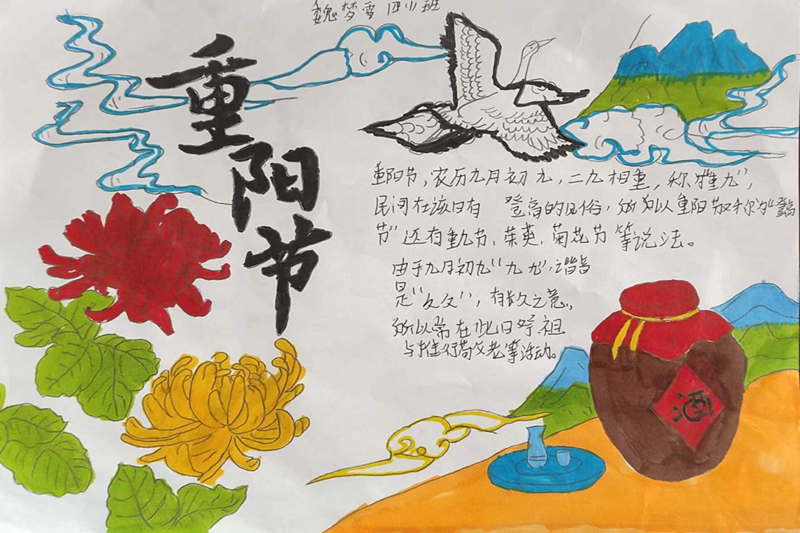 魏梦雪 四(1)班
重阳节
重阳节，农历九月初九，二九相重，称"重九"，
民间在该日有 登高的风俗，所以重阳节又称为"登高
节"还有重九节、茱萸、菊花节等说法。
由于九月初九"九九"谐音
是"久久"，有长久之意，
所以常在此日祭祖
与推行敬老等活动。
酒